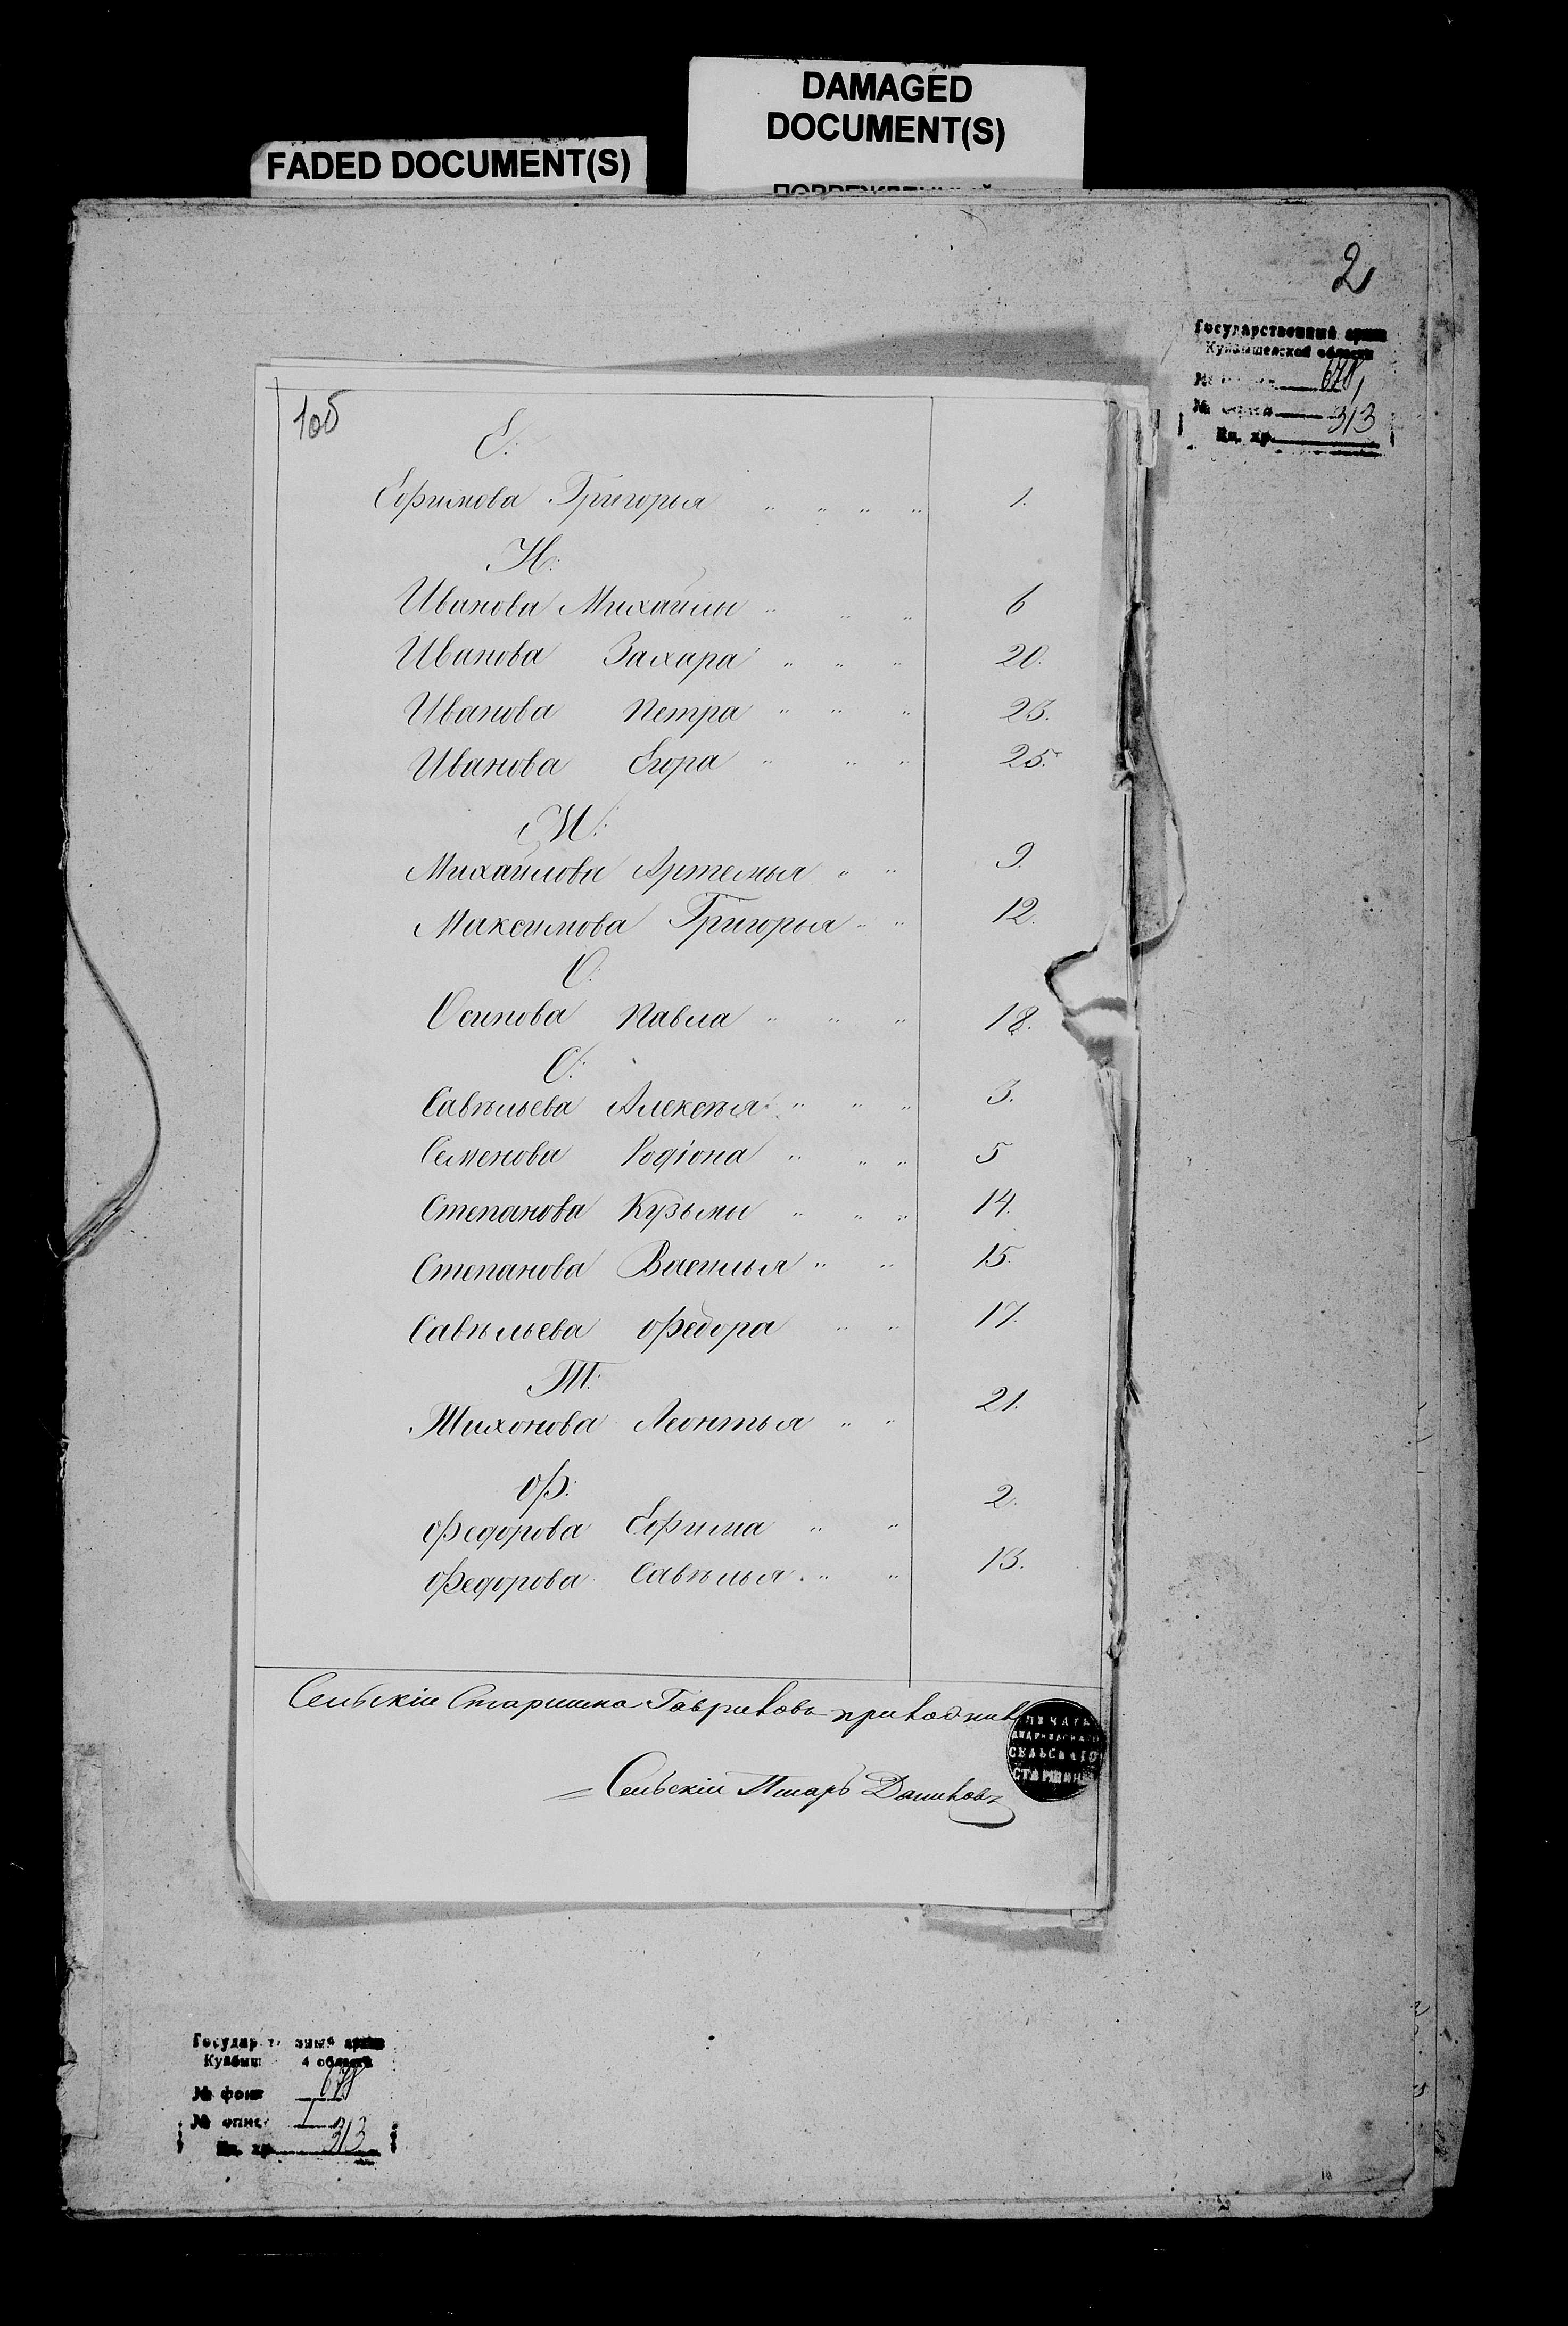 DAMAGED
DOCUMENT(S)
FADED DOCUMENT(S)
2
Государственный архив
Куйбышевской области
№ 678
№ описи 313
Ед. хр.
105
Е:
Ефимова Григорья " " " " 1.
И:
Иванова Михайлы " " " 6
Иванова Захара " " " 20.
Иванова Петра " " " 23.
Иванова Егора " " " 25.
М:
Михайлова Артемья " " 9.
Максимова Григорья " " 12.
О:
Осипова Павла " " " 18.
С:
Савельева Алексея " " " 3.
Семенова Родіона " " " 5
Степанова Кузьмы " " " 14.
Степанова Василья " " 15.
Савельева Федора " " 17.
Т:
Тихонова Леонтья " " 21.
Ф:
Федорова Ефима " " 2.
Федорова Савелья " " 13.
Сельскіи Старшина Гавриловъ
ПЕЧАТЬ
СЕЛЬСКАГО
СТАРШИНЫ
Сельскій Писарь Даниловъ
Государственный архив
Куйбыш й области
№ фон 678
№ опис 1
Ед. хр. 313